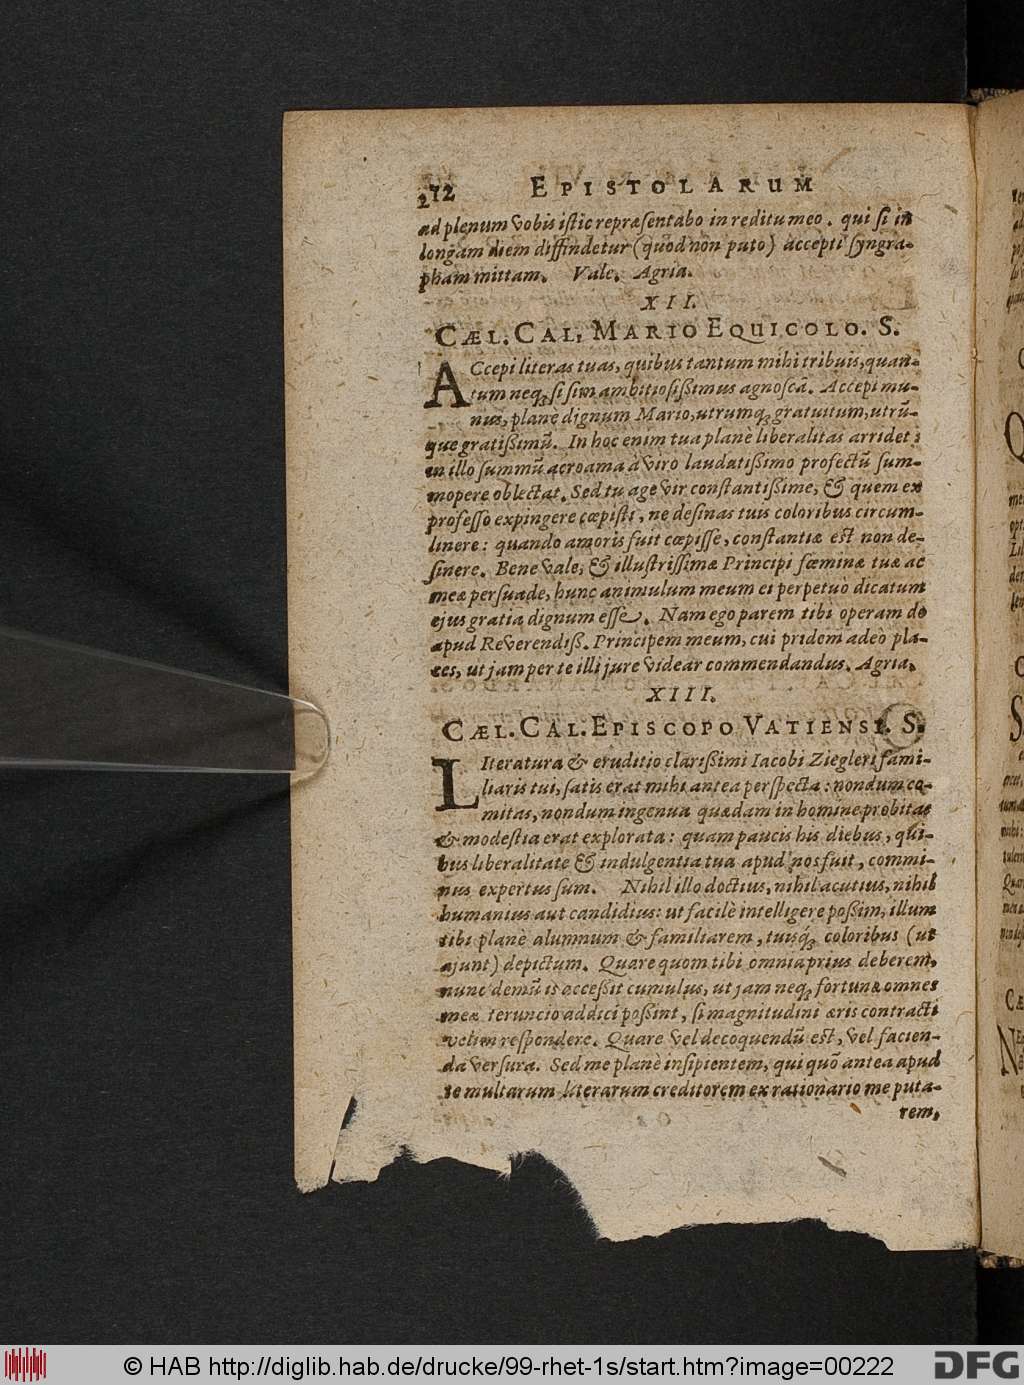 272 EPISTOLARUM
ad plenum vobis istic repræsentabo in reditu meo. qui si in
longam diem diffindetur (quod non puto) accepti syngra-
pham mittam. Vale. Agria.
XII.
CÆL. CAL. MARIO EQUICOLO. S.
ACcepi literas tuas, quibus tantum mihi tribuis, quan-
tum neq; si sim ambitiosißimus agnoscā. Accepi mu-
nus, planè dignum Mario, utrumq; gratuitum, utrū-
que gratißimū. In hoc enim tua planè liberalitas arridet:
in illo summū acroama à viro laudatißimo profectū sum-
mopere oblectat. Sed tu age vir constantißime, & quem ex
professo expingere cœpisti, ne desinas tuis coloribus circum-
linere: quando amoris fuit cœpisse, constantiæ est non de-
sinere. Bene vale, & illustrissimæ Principi fœminæ tuæ ac
meæ persuade, hunc animulum meum ei perpetuò dicatum
ejus gratia dignum esse. Nam ego parem tibi operam do
apud Reverendiß. Principem meum, cui pridem adeò pla-
ces, ut jam per te illi jure videar commendandus. Agria.
XIII.
CÆL. CAL. EPISCOPO VATIENSI. S.
LIteratura & eruditio clarißimi Iacobi Ziegleri fami-
liaris tui, satis erat mihi antea perspecta: nondum co-
mitas, nondum ingenua quædam in homine probitas
& modestia erat explorata: quam paucis his diebus, qui-
bus liberalitate & indulgentia tua apud nos fuit, commi-
nus expertus sum. Nihil illo doctius, nihil acutius, nihil
humanius aut candidius: ut facilè intelligere poßim, illum
tibi planè alumnum & familiarem, tuisq́; coloribus (ut
ajunt) depictum. Quare quom tibi omnia prius deberem,
nunc demū is accessit cumulus, ut jam neq; fortunæ omnes
meæ teruncio addici poßint, si magnitudini æris contracti
velim respondere. Quare vel decoquendū est, vel facien-
da versura. Sed me planè insipientem, qui quō antea apud
te multarum literarum creditorem ex rationario me puta-
rem,
© HAB http://diglib.hab.de/drucke/99-rhet-1s/start.htm?image=00222
DFG